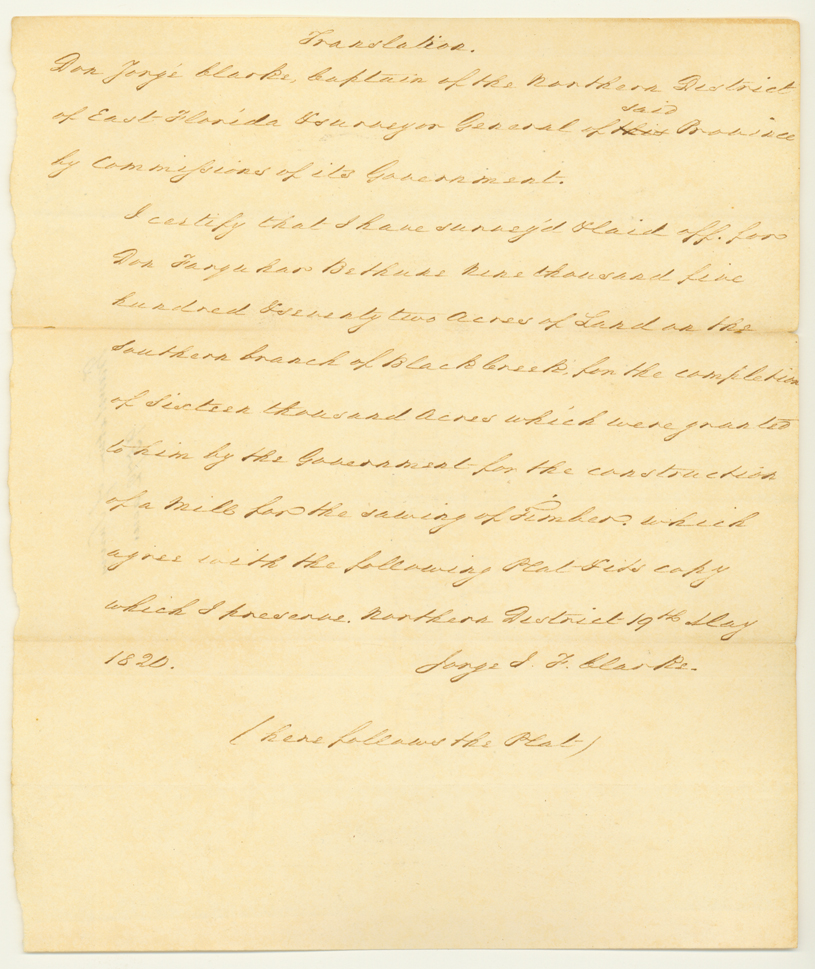 Translation.
Don Jorge Clarke, Captain of the Northern District
of East Florida & surveyor General of this said Province
by Commissions of its Government.
I certify that I have survey'd & laid off. for
Don Farquhar Bethune Nine thousand five
hundred & seventy two Acres of Land on the
southern branch of Black Creek, for the completion
of sixteen thousand Acres which were granted
to him by the Government for the construction
of a Mill for the sawing of Timber. which
agree with the following Plat & its copy
which I preserve. Northern District 19th May
1820. Jorge J. F. Clarke.
(here follows the Plat)